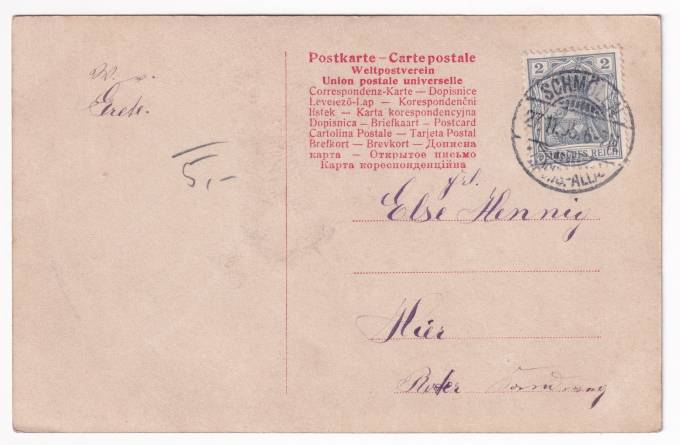 Postkarte – Carte postale
Weltpostverein
Union postale universelle
Correspondenz-Karte — Dopisnice
Levelező-Lap — Korespondenční
lístek — Karta korespondencyjna
Dopisnica — Briefkaart — Postcard
Cartolina Postale — Tarjeta Postal
Brefkort — Brevkort — Дописна
карта — Открытое письмо
Карта кореспонденційна
2 2
DEUTSCHES REICH
SCHM
Grete.
5,-
Frl.
Else Hennig
Hier
Roter